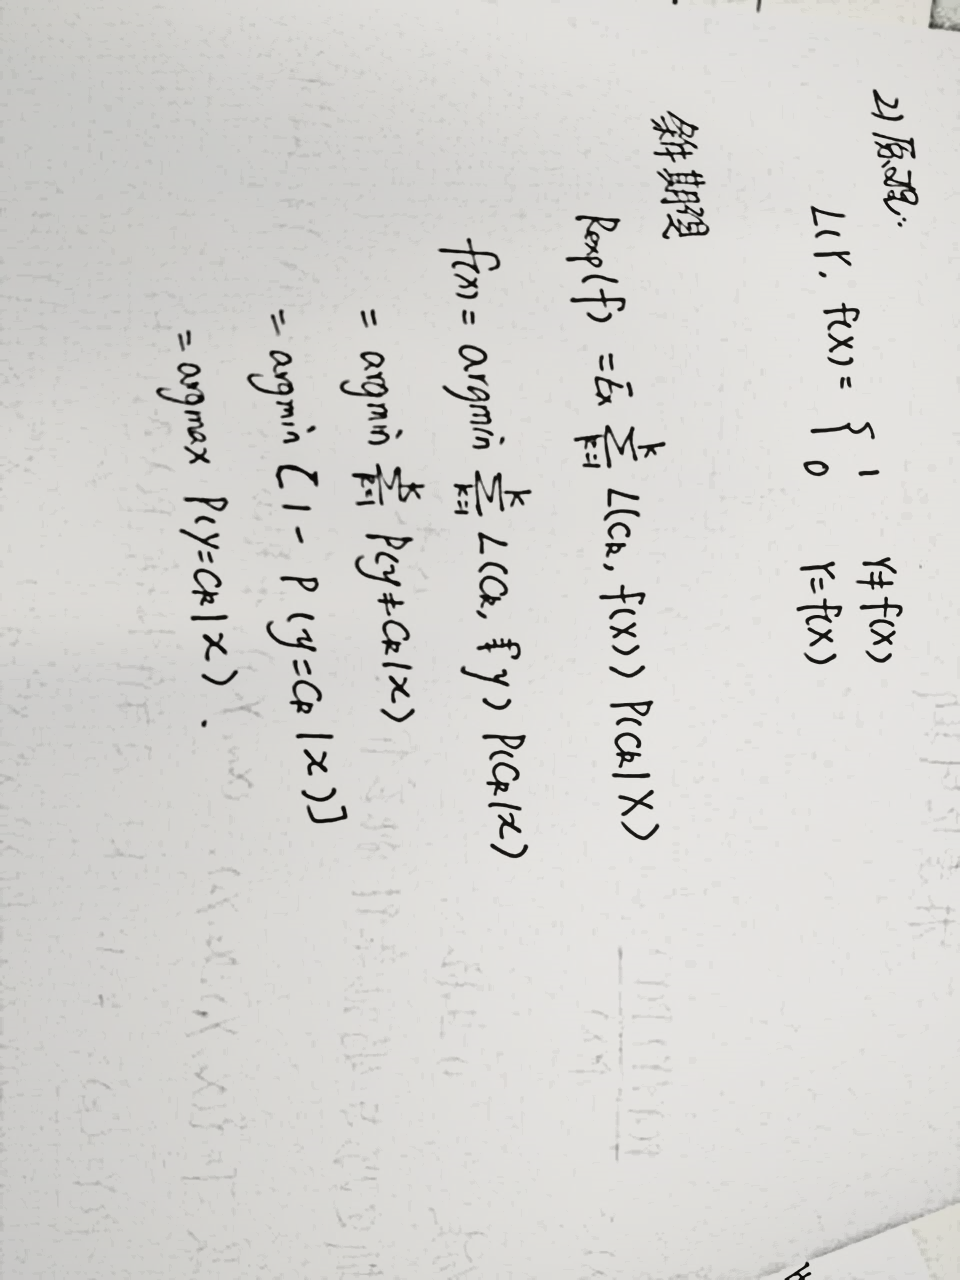 2) 原理:
L(Y, f(X) = { 1 Y≠f(X)
0 Y=f(X)
条件期望
Rexp(f) = Ex ∑_{k=1}^{k} L(Ck, f(X)) P(Ck|X)
f(x) = argmin ∑_{k=1}^{k} L(Ck, y) P(Ck|x)
= argmin ∑_{k=1}^{k} P(y≠Ck|x)
= argmin [1- P(y=Ck|x)]
= argmax P(y=Ck|x).